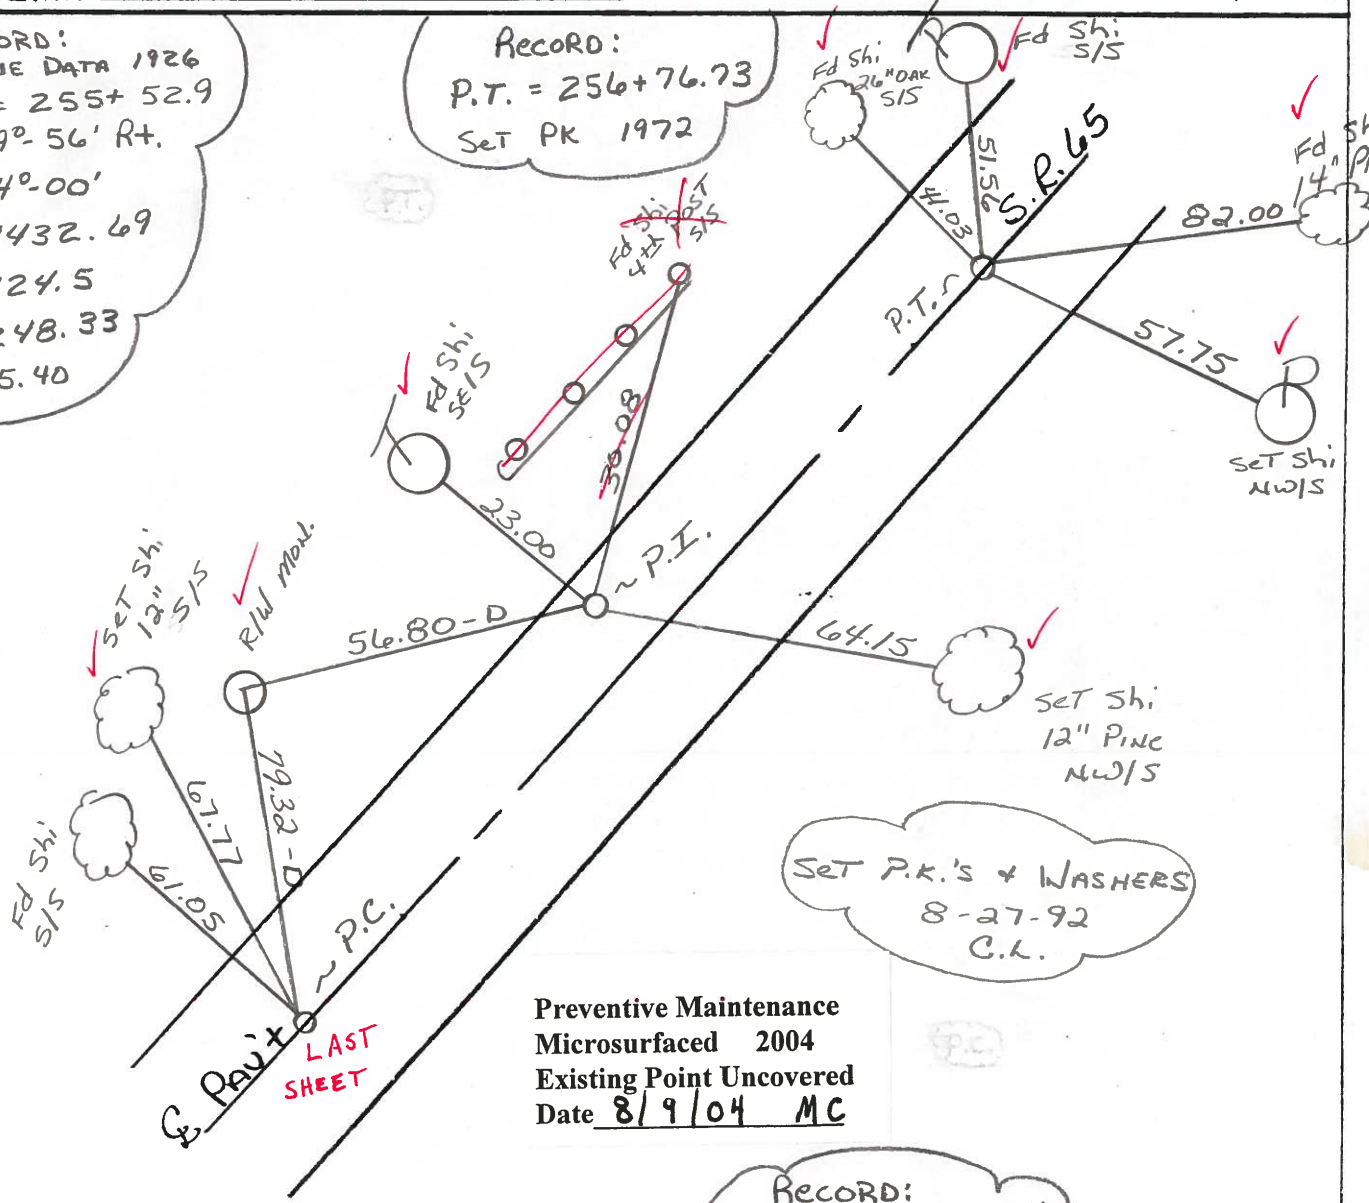 ORD:
E DATA 1926
= 255+ 52.9
9°-56' Rt.
4°-00'
432.69
24.5
48.33
5.40
RECORD:
P.T. = 256+76.73
SeT PK 1972
Fd Shi
26" OAK
S/S
Fd Shi
S/S
51.56
41.03
S.R. 65
82.00
Fd Sh
14" P
P.T.
57.75
SeT Shi
NW/S
Fd Shi
4th POST
S/S
30.08
Fd Shi
SE/S
23.00
~ P.I.
SeT Shi
12"
S/S
R/W MON.
56.80-D
64.15
SeT Shi
12" PINE
NW/S
79.32-D
67.77
61.05
Fd Shi
S/S
~ P.C.
SeT P.K.'S & WASHERS
8-27-92
C.L.
℄ PAV'T
LAST
SHEET
Preventive Maintenance
Microsurfaced 2004
Existing Point Uncovered
Date 8/9/04 MC
P.T.
P.C.
RECORD: